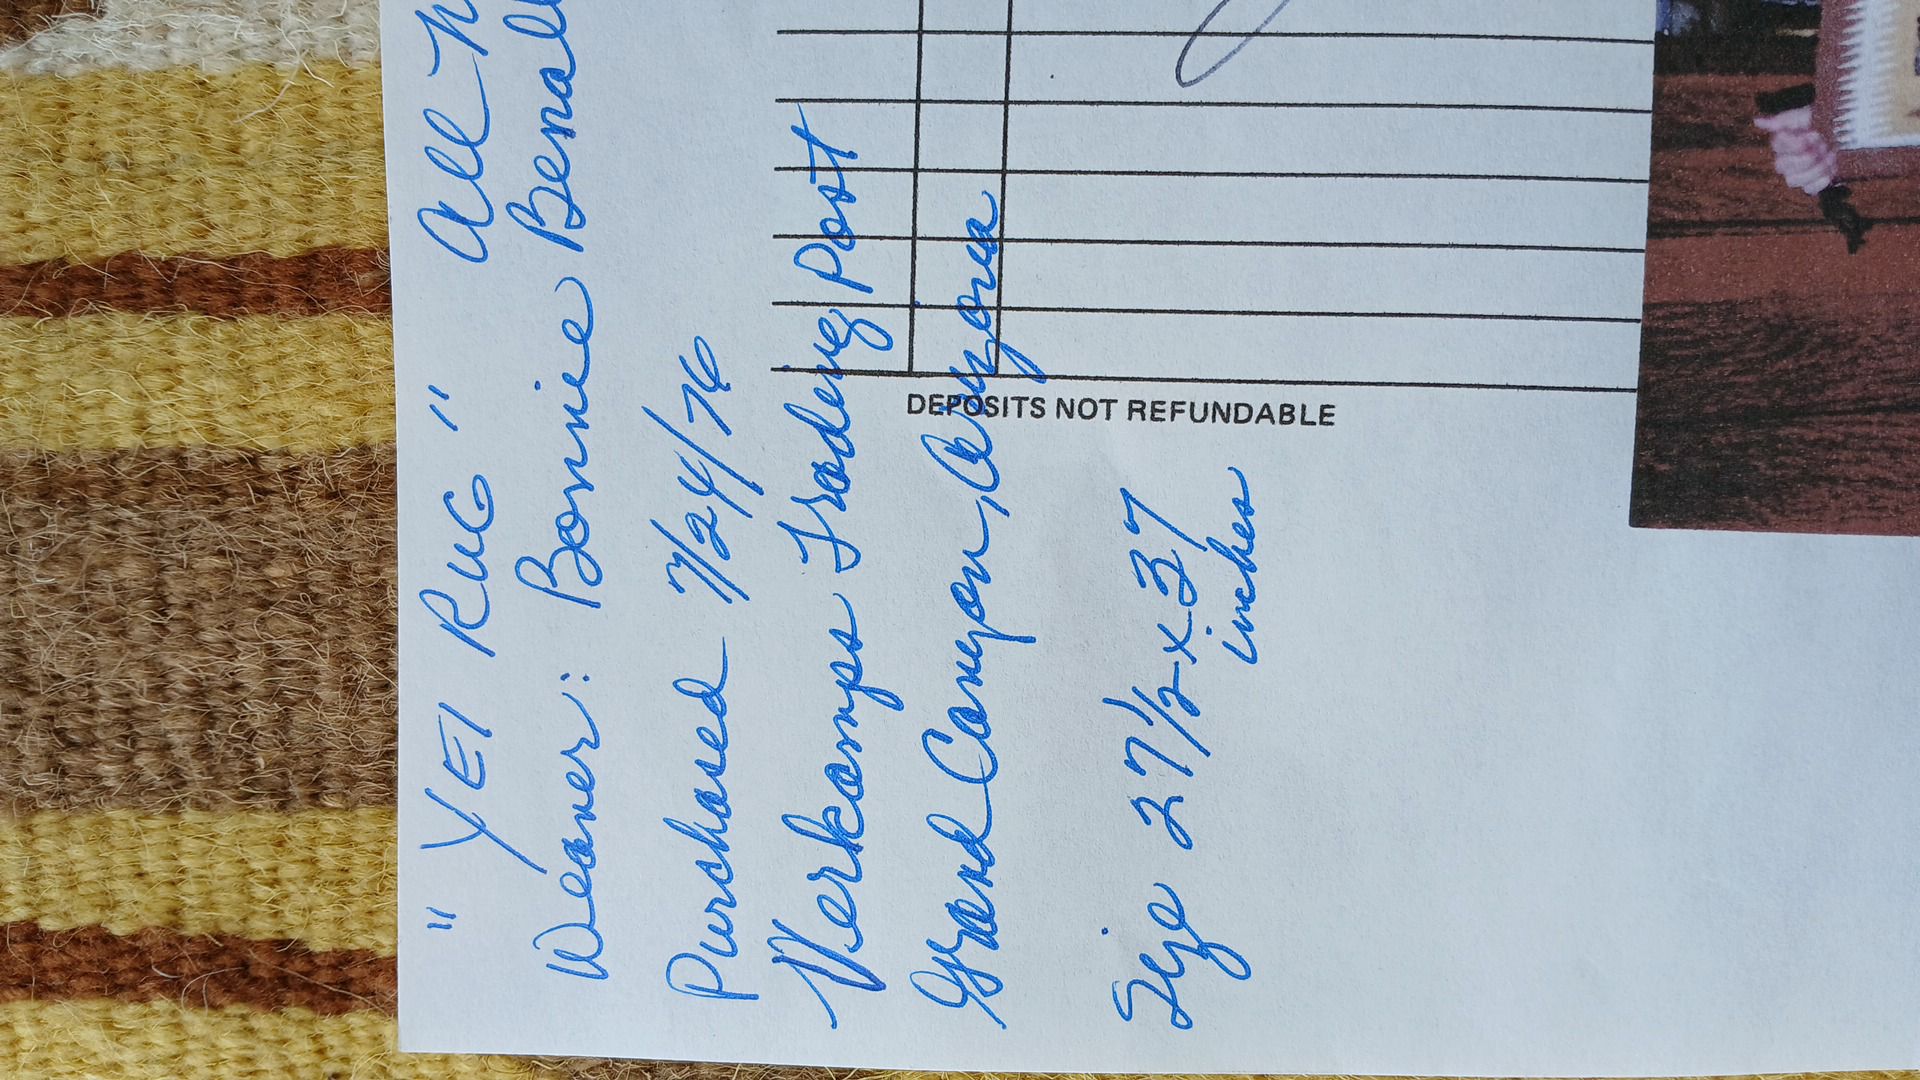 "YEI RUG" All
Weaver: Bonnie
Purchased 7/24/76
Verkamps Trading Post
Grand Canyon, Arizona
Size 27 1/2 x 37
inches
DEPOSITS NOT REFUNDABLE